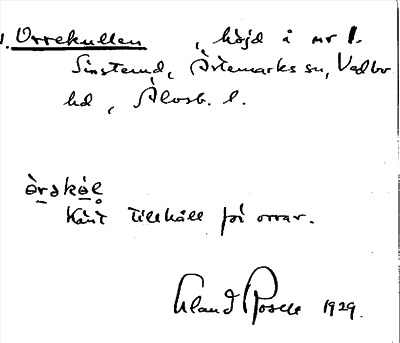 1. Orrekullen, höjd å nr 1.
Sinsterud, Ärtemarks sn, Vedbo
hd, Älvsb. l.
òrəkɵ̀l̥
Känt tillhåll för orrar.
Eland Rosell 1929.